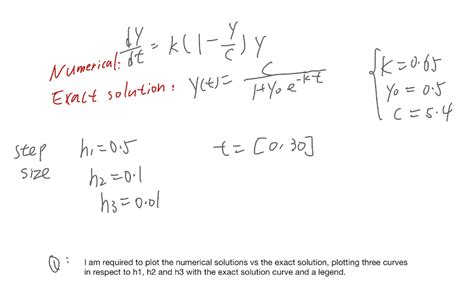 Numerical: dY/dt = k(1 - Y/C) Y
Exact solution: Y(t) = C/(1+Y₀ e^(-kt))
K = 0.65
Y₀ = 0.5
C = 5.4
step size
h₁ = 0.5
h₂ = 0.1
h₃ = 0.01
t = [0, 30]
Q: I am required to plot the numerical solutions vs the exact solution, plotting three curves
in respect to h1, h2 and h3 with the exact solution curve and a legend.